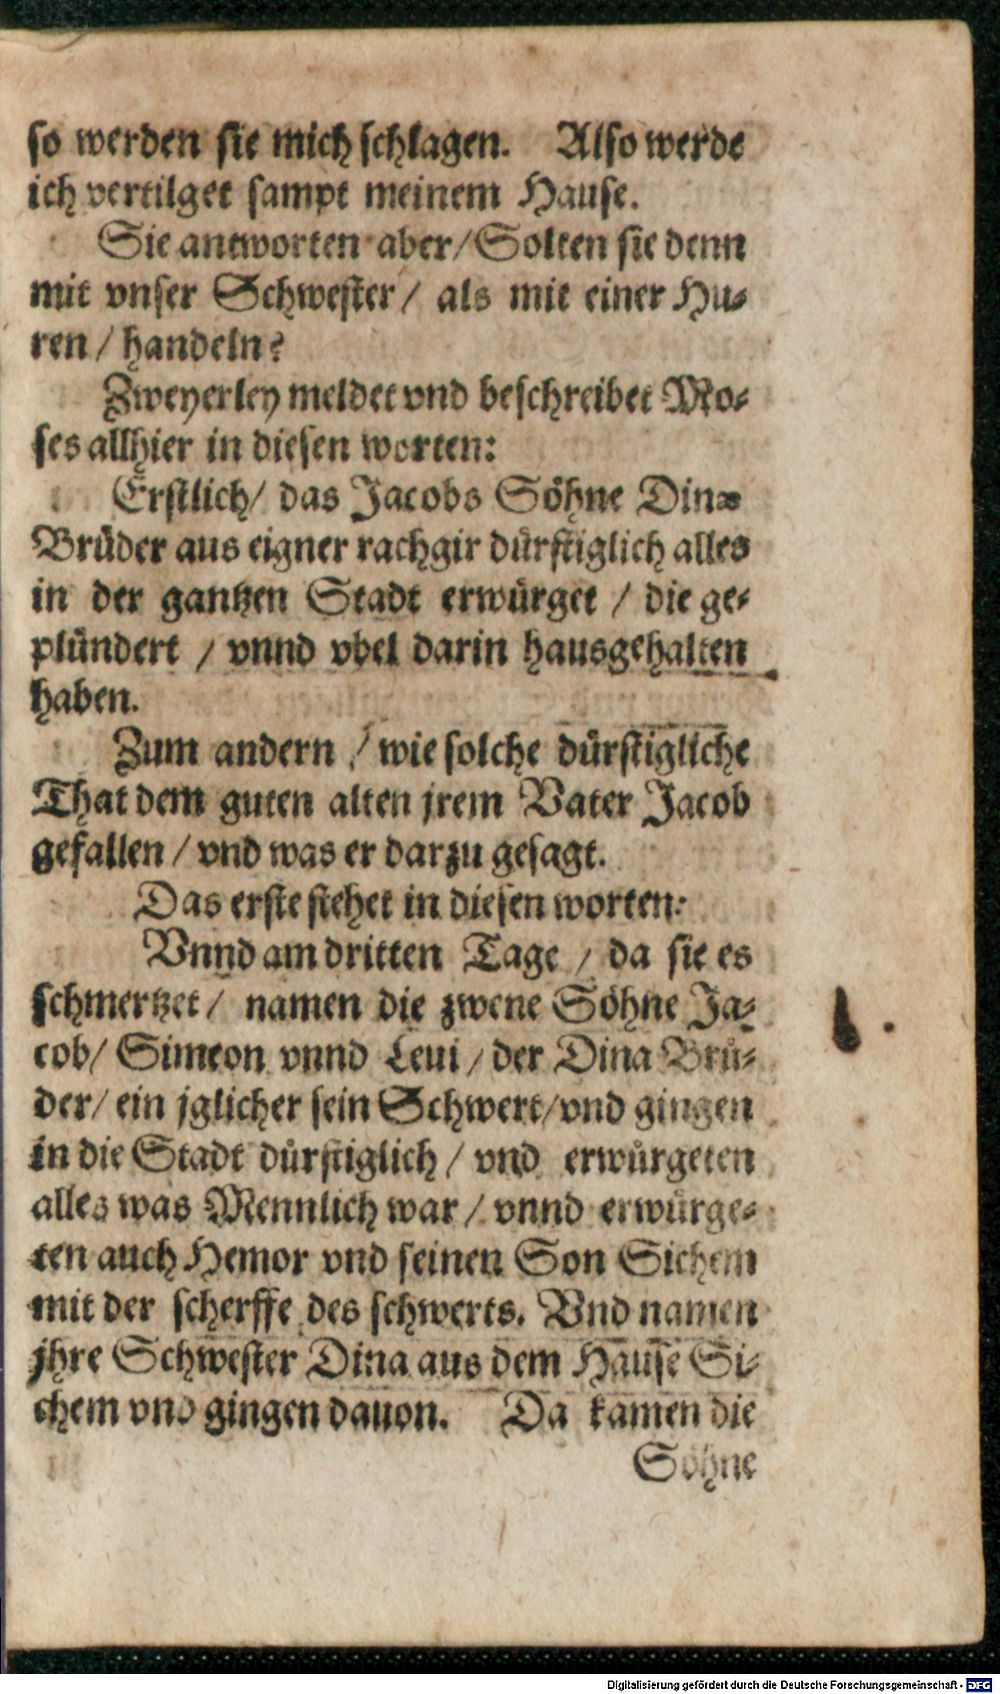 so werden sie mich schlagen. Also werde
ich vertilget sampt meinem Hause.
Sie antworten aber/ Solten sie denn
mit vnser Schwester/ als mit einer Hu-
ren/ handeln?
Zweyerley meldet vnd beschreibet Mo-
ses allhier in diesen worten:
Erstlich/ das Jacobs Söhne Dinæ
Brüder aus eigner rachgir dürstiglich alles
in der gantzen Stadt erwürget / die ge-
plündert / vnnd vbel darin hausgehalten
haben.
Zum andern / wie solche dürstigliche
That dem guten alten jrem Vater Jacob
gefallen / vnd was er darzu gesagt.
Das erste stehet in diesen worten:
Vnnd am dritten Tage / da sie es
schmertzet/ namen die zwene Söhne Ja-
cob/ Simeon vnnd Leui / der Dina Brü-
der/ ein jglicher sein Schwert/ vnd gingen
in die Stadt dürstiglich / vnd erwürgeten
alles was Mennlich war / vnnd erwürge-
ten auch Hemor vnd seinen Son Sichem
mit der scherffe des schwerts. Vnd namen
jhre Schwester Dina aus dem Hause Si-
chem vnd gingen dauon. Da kamen die
Söhne
Digitalisierung gefördert durch die Deutsche Forschungsgemeinschaft - DFG